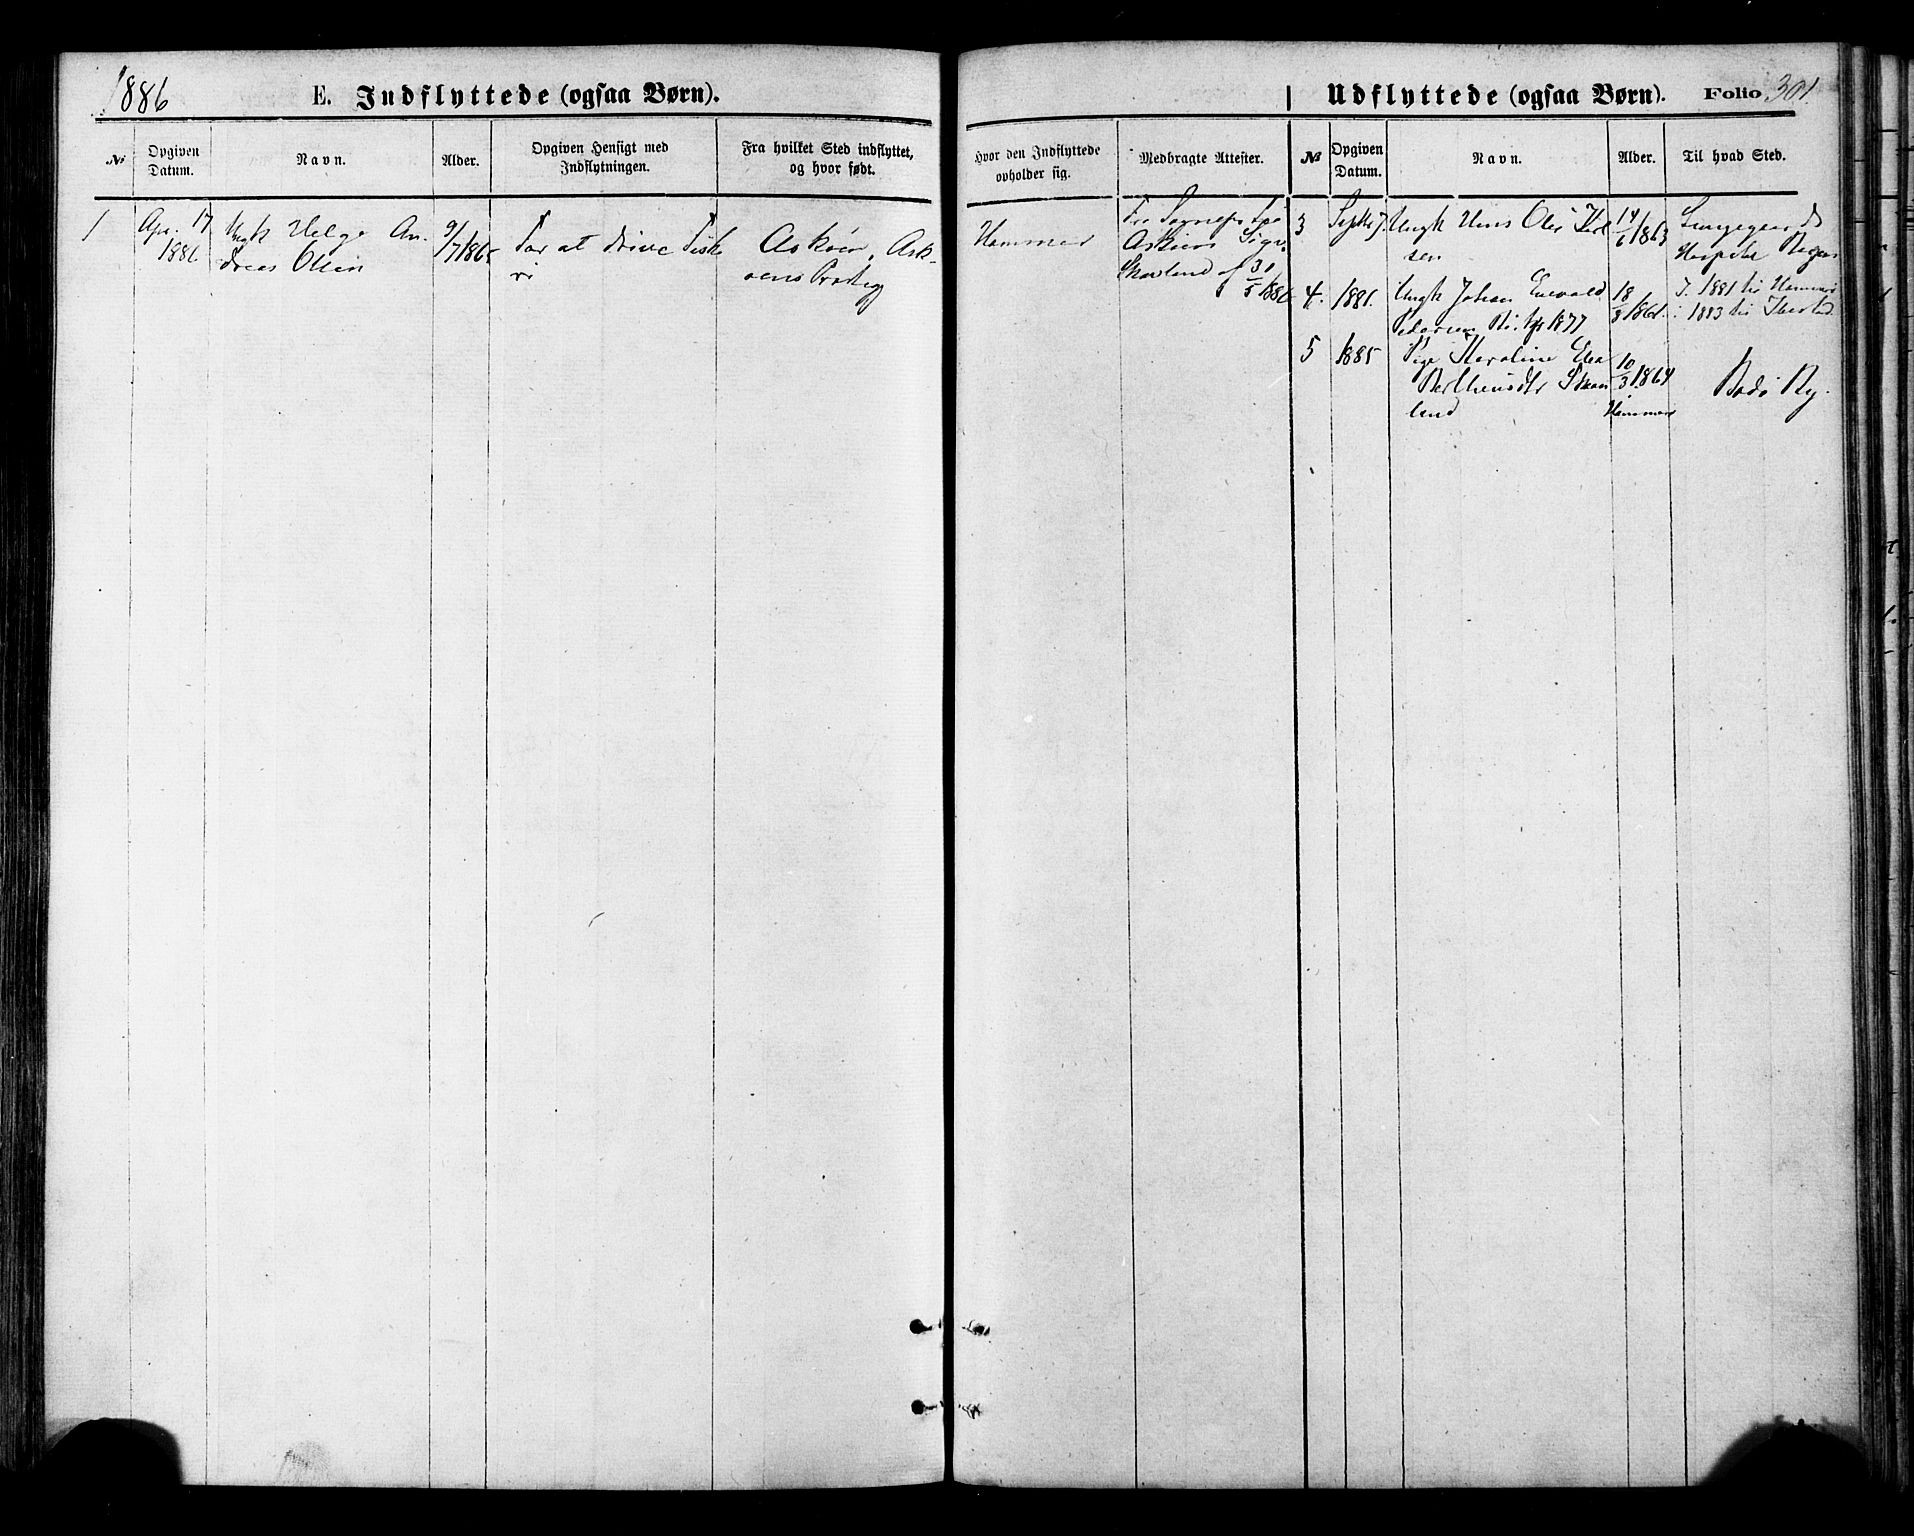 1886
E. Indflyttede (ogsaa Børn).
№
Opgiven Datum.
Navn.
Alder.
Opgiven Hensigt med Indflytningen.
Fra hvilket Sted indflyttet, og hvor født.
1
Apr. 17
1886
Ungk Helge An-
dreas Olsen
9/7 1865
For at drive Fiske
ri
Askøen, Ask-
øens Prstgj
Udflyttede (ogsaa Børn). Folio 301.
Hvor den Indflyttede opholder sig.
Medbragte Attester.
№
Opgiven Datum.
Navn.
Alder.
Til hvad Sted.
Hammer
Fra Sognepr. til
Askøen
Skovland af 31/5 1886
3
Septbr 7.
Ungk Hans Olai
sen
14/6 1863
Lungegaards
Hospital Bergen
4.
1881.
Ungk Johan Edevald
Pedersen 1877
18/8 1861.
1881 til Hammer
1883 til Ibestad
5
1885
Pige Karoline
Bertheusdtr Skaa
lund
10/3 1864
Hammer
Bodø By.